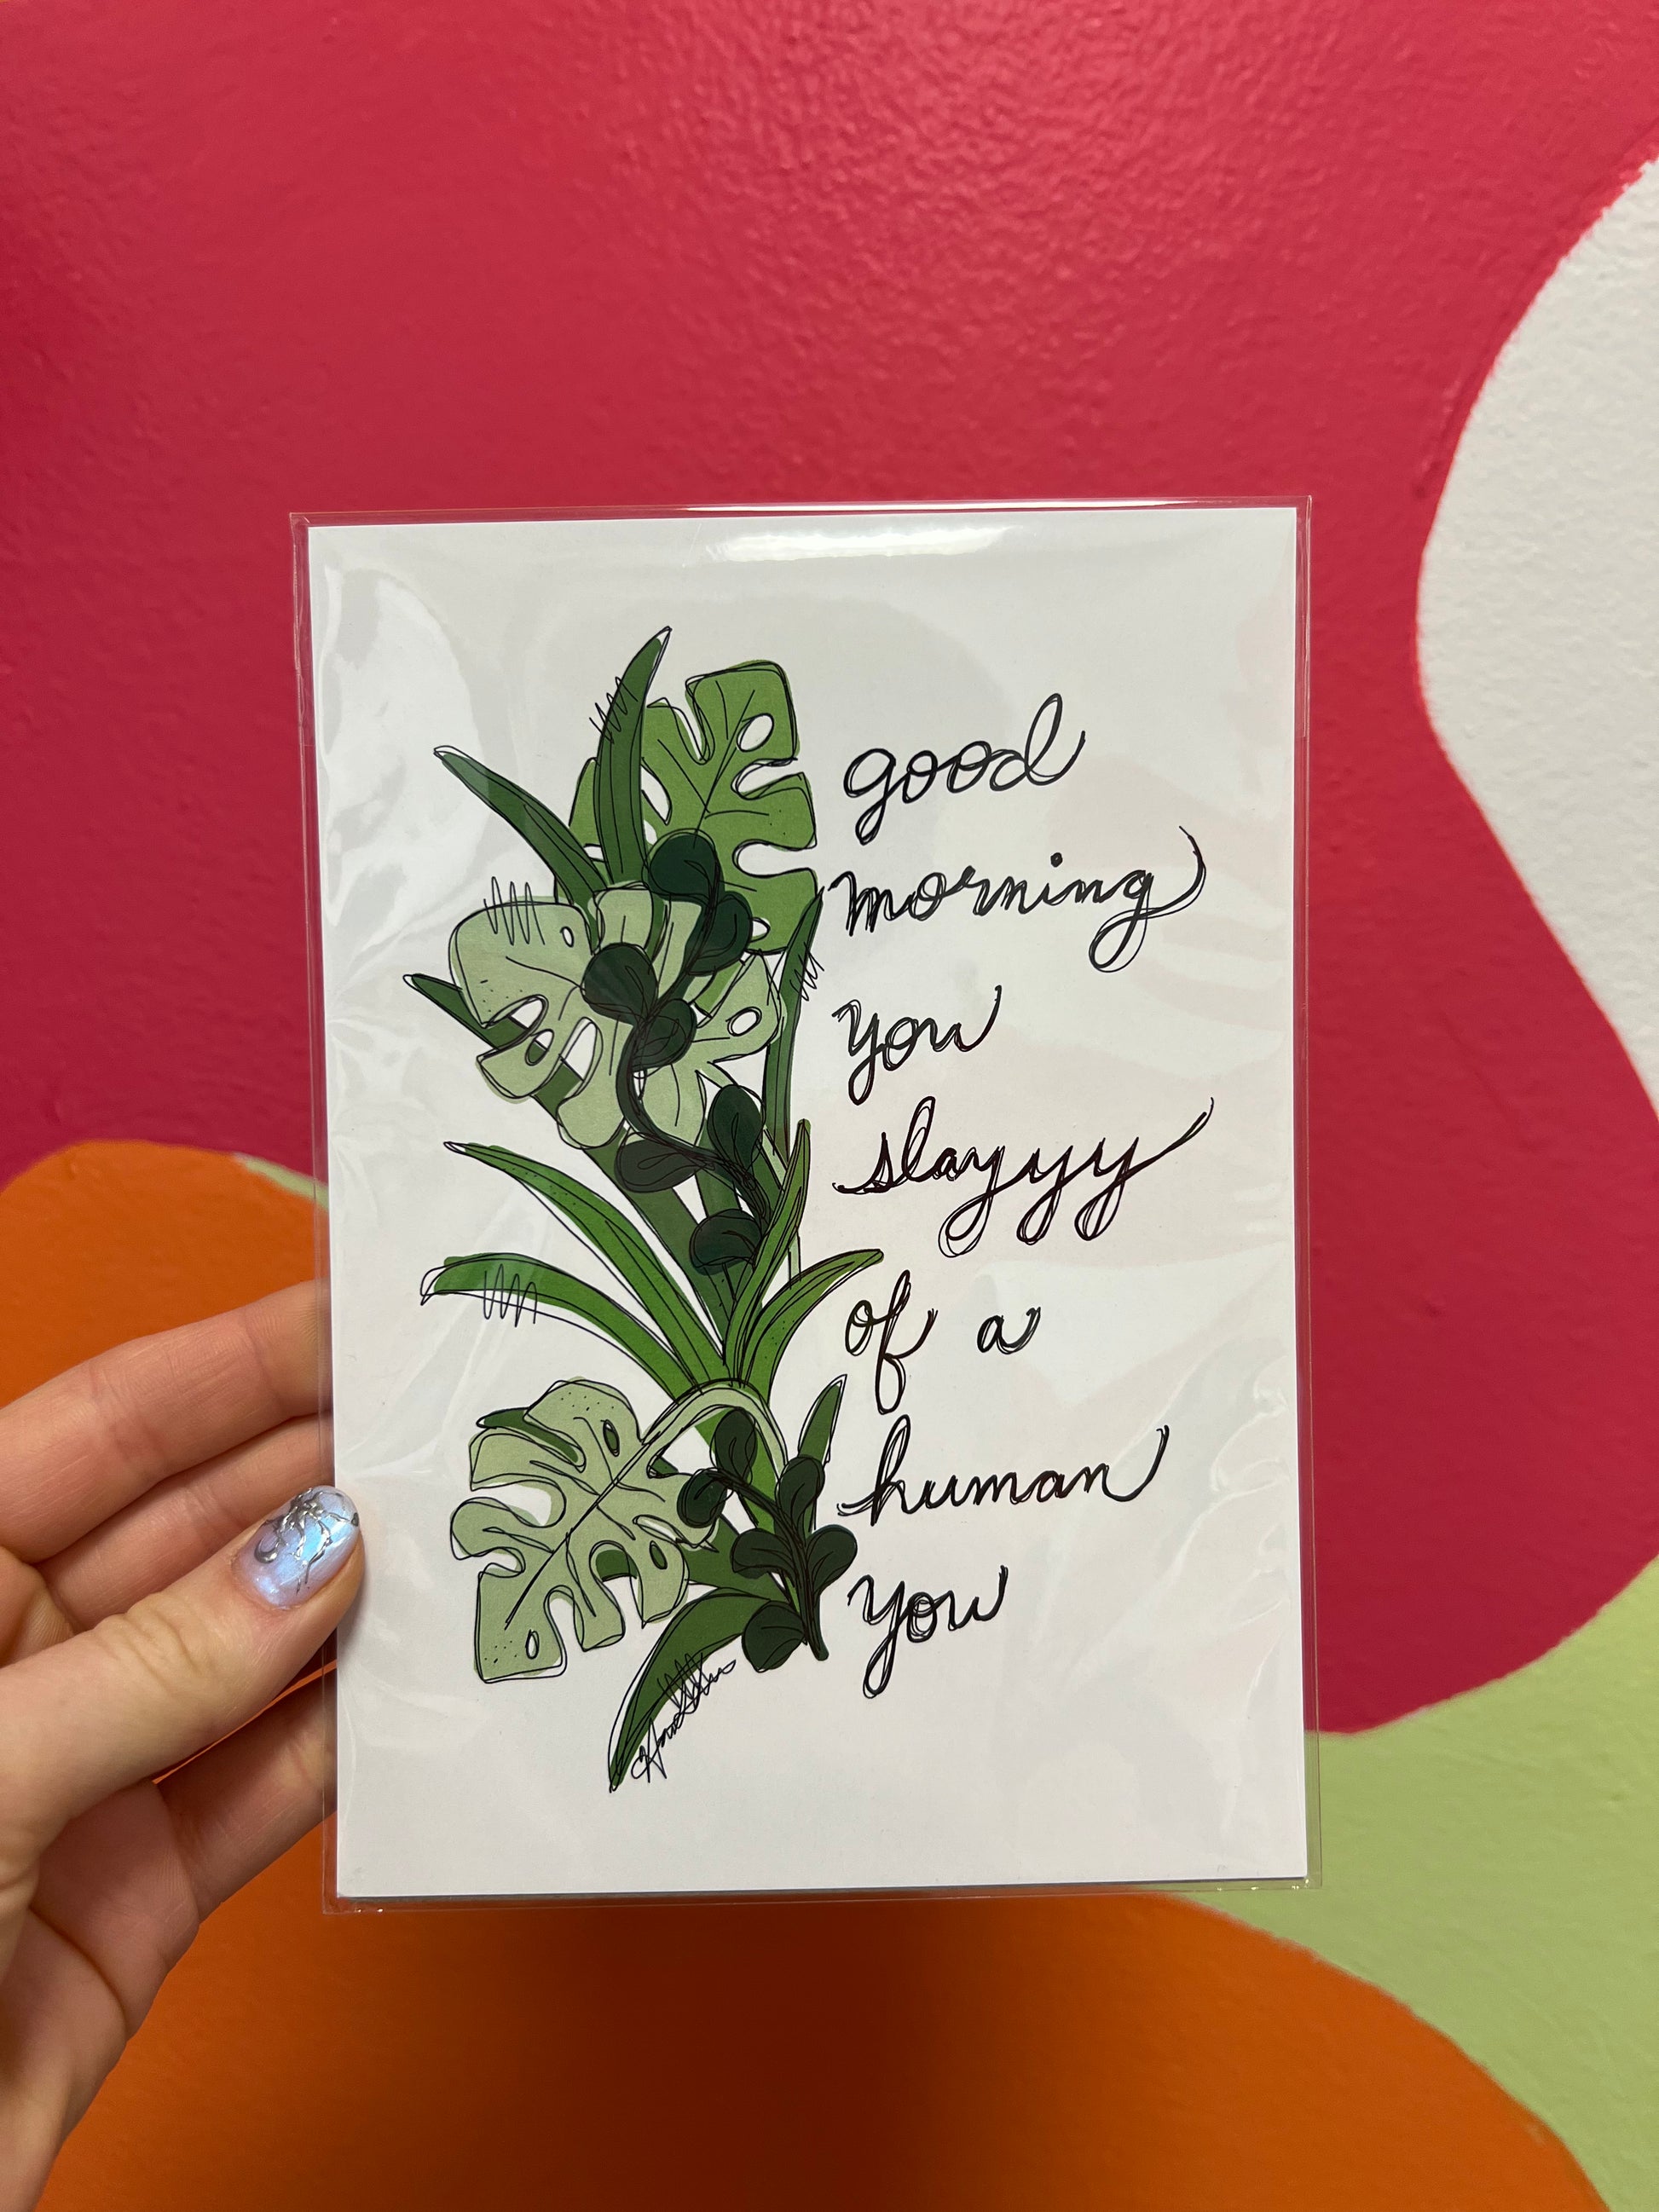 good
morning
you
slayyy
of a
human
you